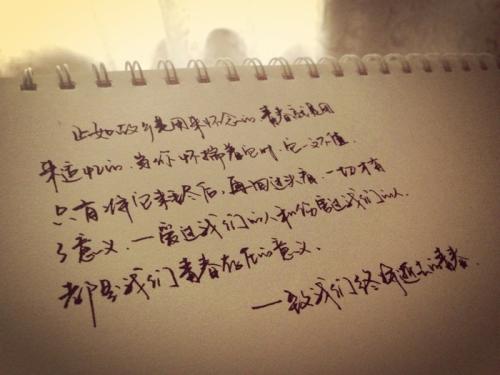 正如故乡是用来怀念的，青春就是用
来追忆的，当你怀揣着它时，它一文不值，
只有将它耗尽后，再回过头看，一切才有
了意义，—爱过我们的人和伤害过我们的人，
都是我们青春存在的意义。
—致我们终将逝去的青春